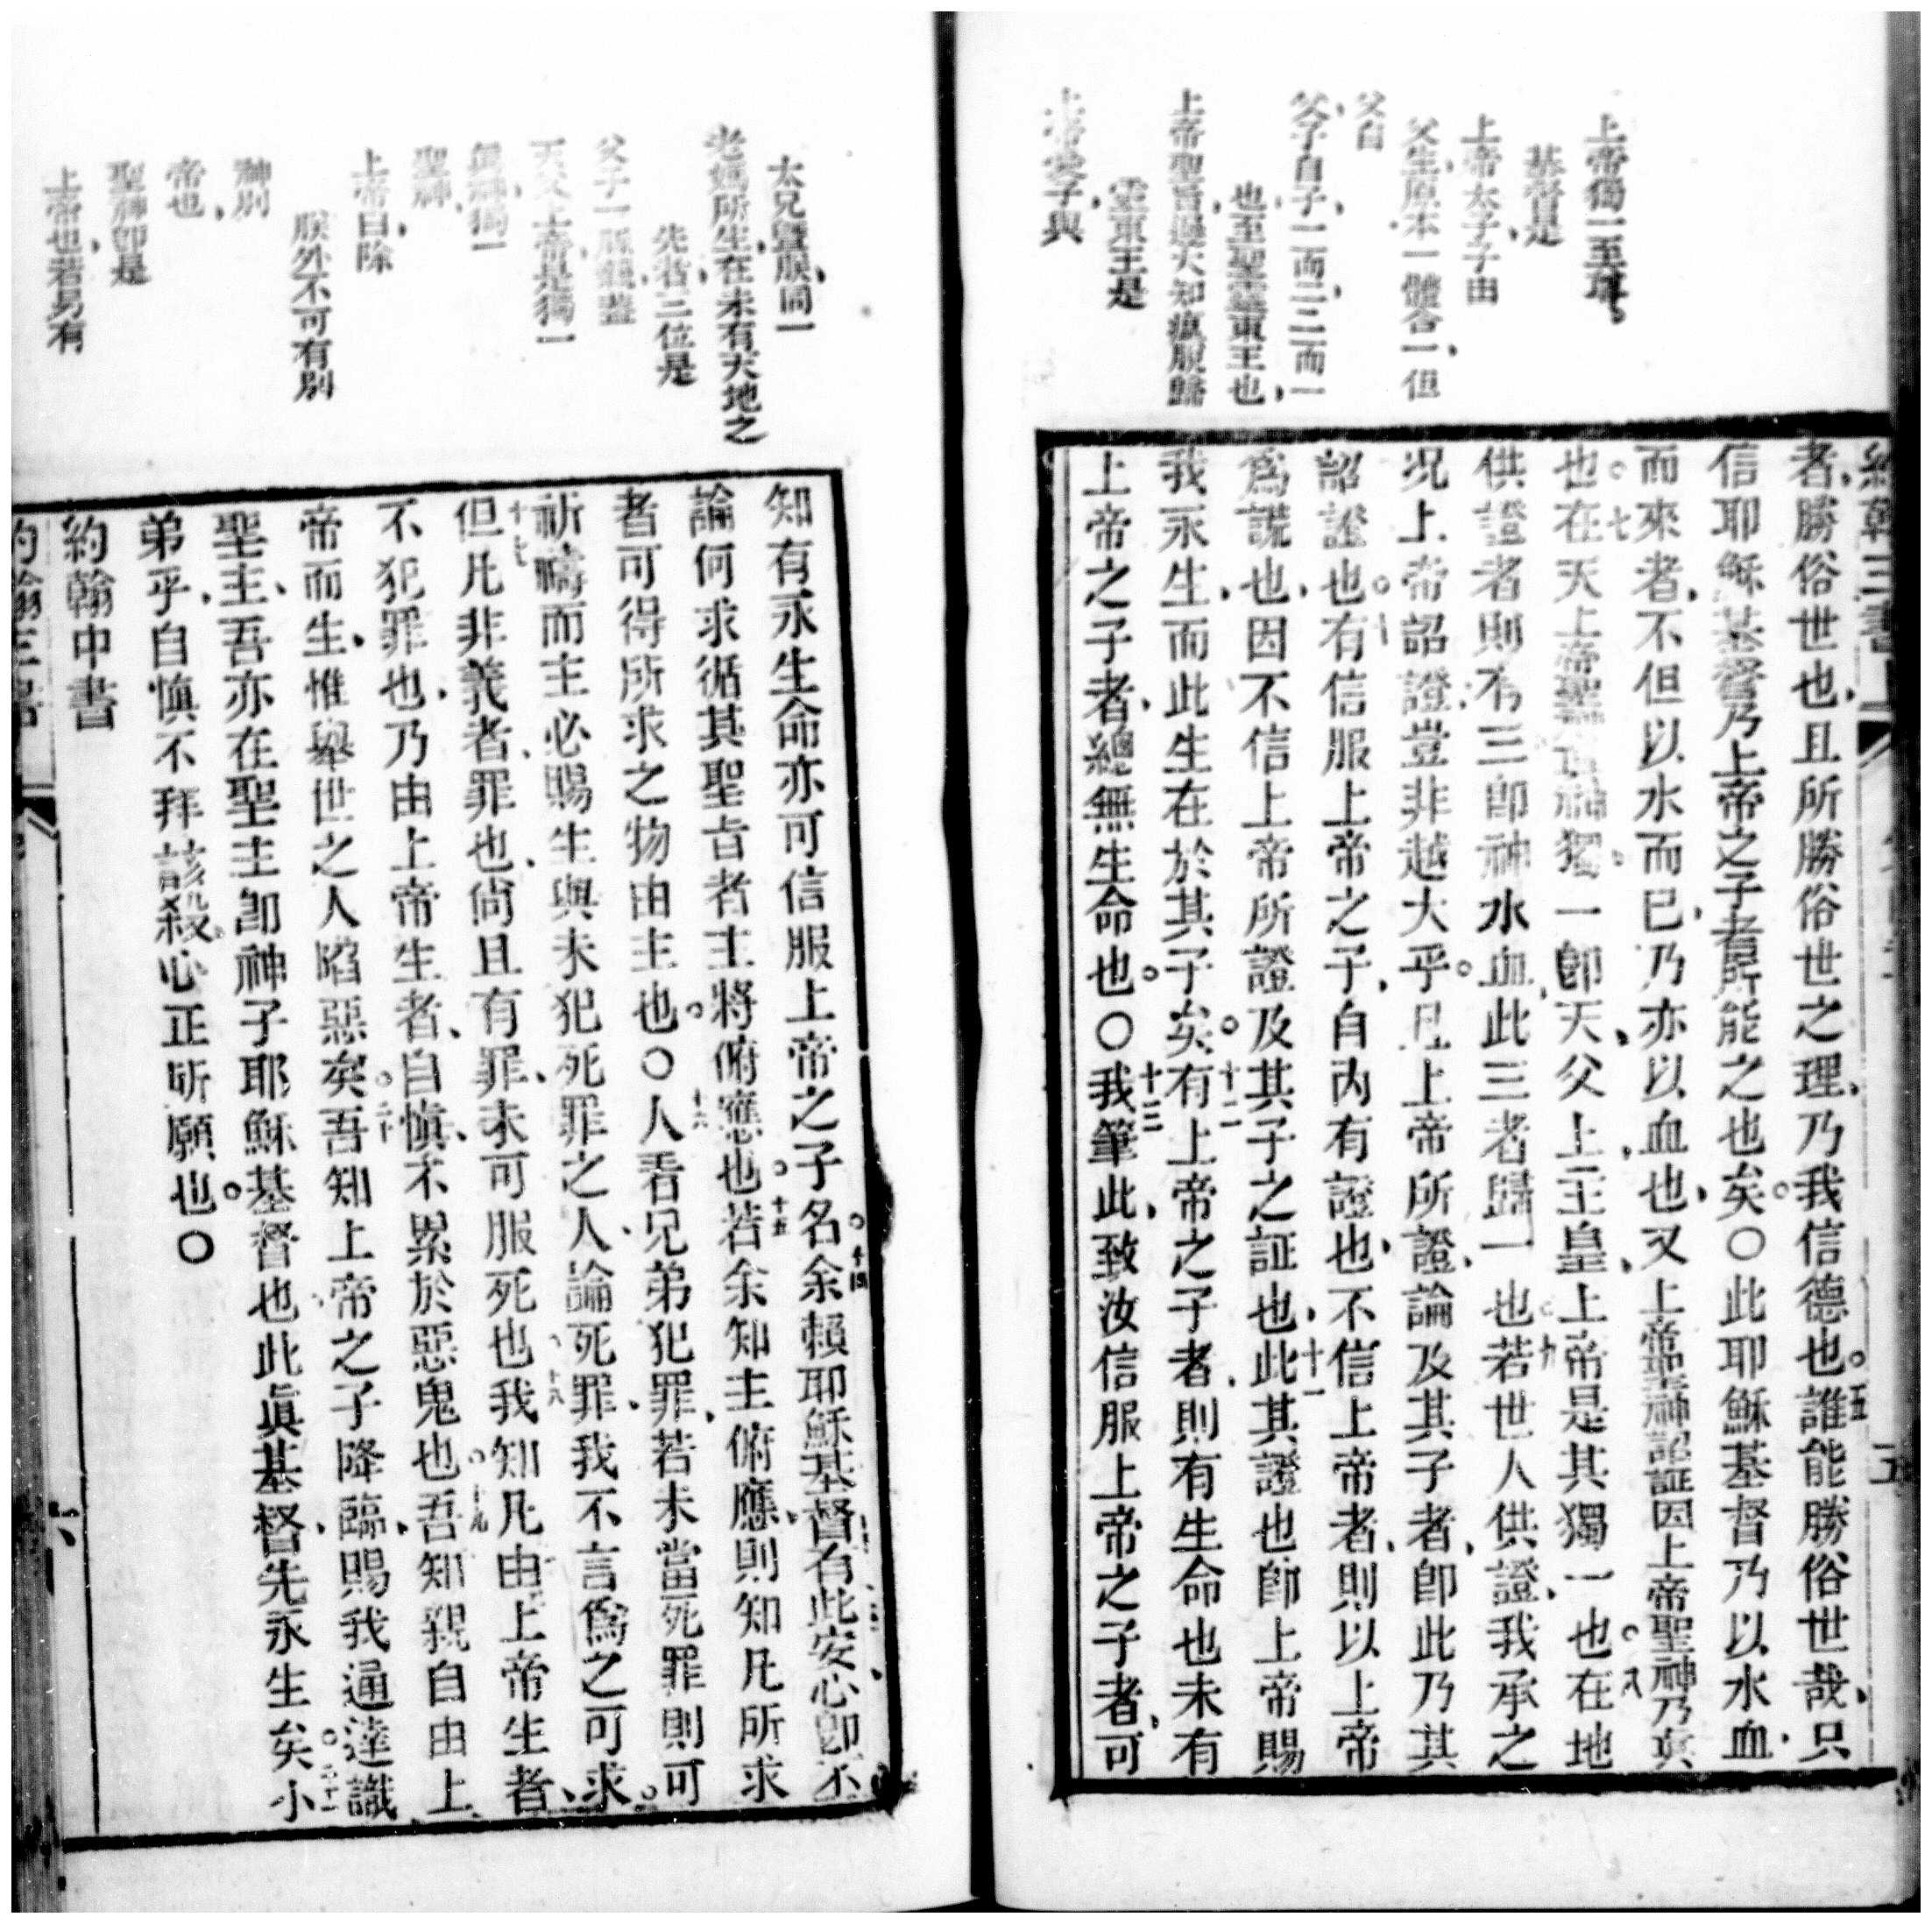 上帝獨一至
基督是
上帝太子子由
父生原本一體合一但
父自
父子自子一而二二而一
也至聖靈東王也
上帝聖旨
靈東王是
上帝愛子與
者勝俗世也且所勝俗世之理乃我信德也五誰能勝俗世哉只
信耶穌基督乃上帝之子者能之也矣〇此耶穌基督乃以水血
而來者不但以水而已乃亦以血也又上帝聖神詔証因上帝聖神乃真
也七在天上帝聖神獨一卽天父上主皇上帝是其獨一也八在地
供證者則有三卽神水血此三者歸一也九若世人供證我承之
况上帝詔證豈非越大乎凡上帝所證論及其子者卽此乃其
詔證也十有信服上帝之子自內有證也不信上帝者則以上帝
爲謊也因不信上帝所證及其子之証也十一此其證也卽上帝賜
我永生而此生在於其子矣十二有上帝之子者則有生命也未有
上帝之子者總無生命也〇十三我筆此致汝信服上帝之子者可
太兄暨朕同一
老媽所生在未有天地之
先者三位是
父子一脈
天父上帝是獨一
聖神獨一
聖神
上帝曰除
朕外不可有別
神別
帝也
聖神卽是
上帝也若另有
知有永生命亦可信服上帝之子名十四余賴耶穌基督有此安心卽不
論何求循其聖旨者主將俯應也十五若余知主俯應則知凡所求
者可得所求之物由主也〇十六人看兄弟犯罪若未當死罪則可
祈禱而主必賜生與未犯死罪之人論死罪我不言爲之可求
十七但凡非義者罪也尙且有罪未可服死也十八我知凡由上帝生者
不犯罪也乃由上帝生者自愼不累於惡鬼也十九吾知親自由上
帝而生惟舉世之人陷惡矣二十吾知上帝之子降臨賜我通達識
聖主吾亦在聖主卽神子耶穌基督也此眞基督先永生矣二十一小
弟乎自愼不拜該殺心正所願也〇
約翰中書
六